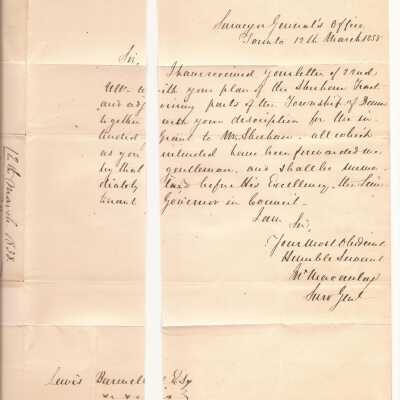 Surveyor General's Office
Toronto 12th March 1838
Sir,
I have received your letter of 22nd
with your plan of the Tract
and adj oining parts of the Township of
together with your description for the in
tended Grant to Mr. all which
as you intended have been forwarded me
by that gentleman, and shall be imme
diately laid before His Excellency, the Lieu
tenant Governor in Council.
I am
Sir,
Your Most Obedient
Humble Servant
Surv Genl
Lewis Esqr
12th March 1838